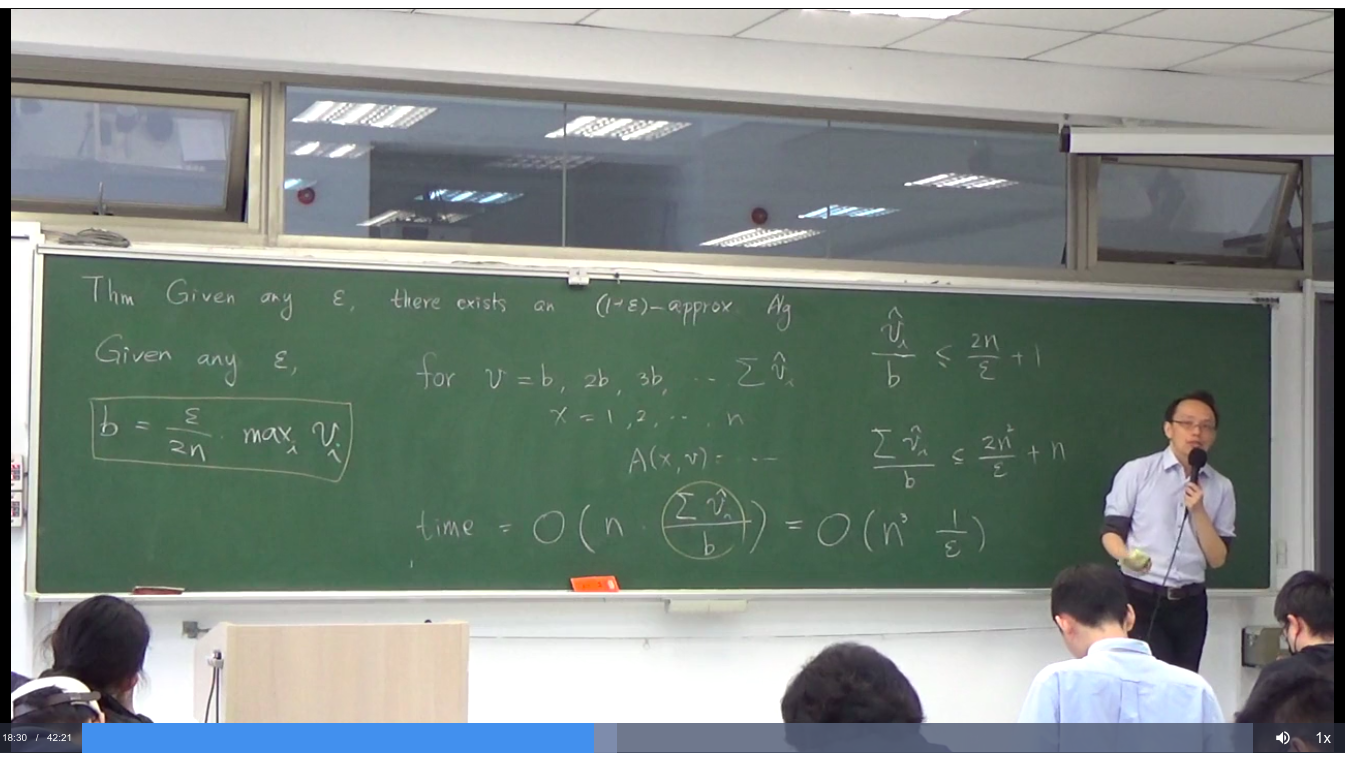 Thm Given any ε, there exists an (1-ε)-approx Alg
Given any ε,
b = ε/2n · max_i v_i
for v = b, 2b, 3b, ··· Σ v̂_i
x = 1, 2, ···, n
A(x, v) = ···
time = O(n · Σ v̂_i / b) = O(n³ 1/ε)
v̂_i / b ≤ 2n/ε + 1
Σ v̂_i / b ≤ 2n²/ε + n
18:30 / 42:21
1x